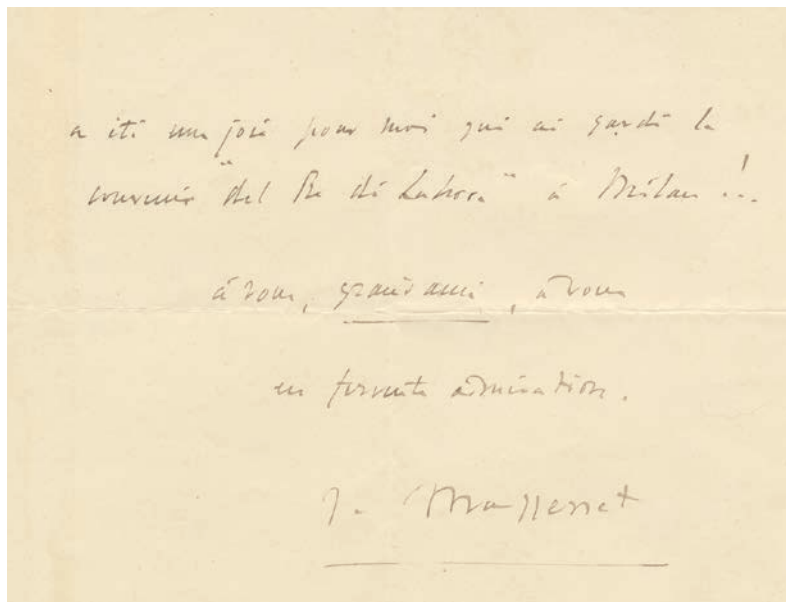 a été une joie pour moi qui ai gardé le
souvenir "del Re di Lahore" à Milan !..
à vous, grand ami, à vous
en fervente admiration.
J. Massenet